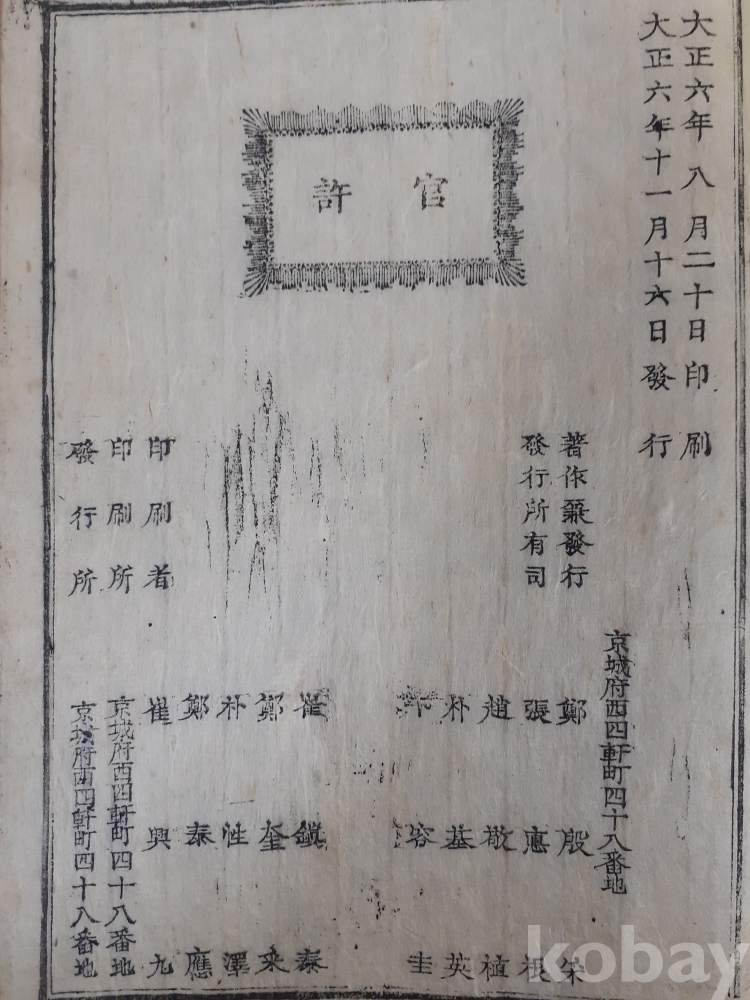 大正六年八月二十日印刷
大正六年十一月十六日發行
官許
京城府西四軒町四十八番地
著作兼發行
發行所有司
鄭殷
張惪根
趙敬植
朴基英
卞容圭
崔鎭泰
鄭奎來
朴性澤
鄭泰應
印刷者 崔興九
印刷所 京城府西四軒町四十八番地
發行所 京城府西四軒町四十八番地
kobay